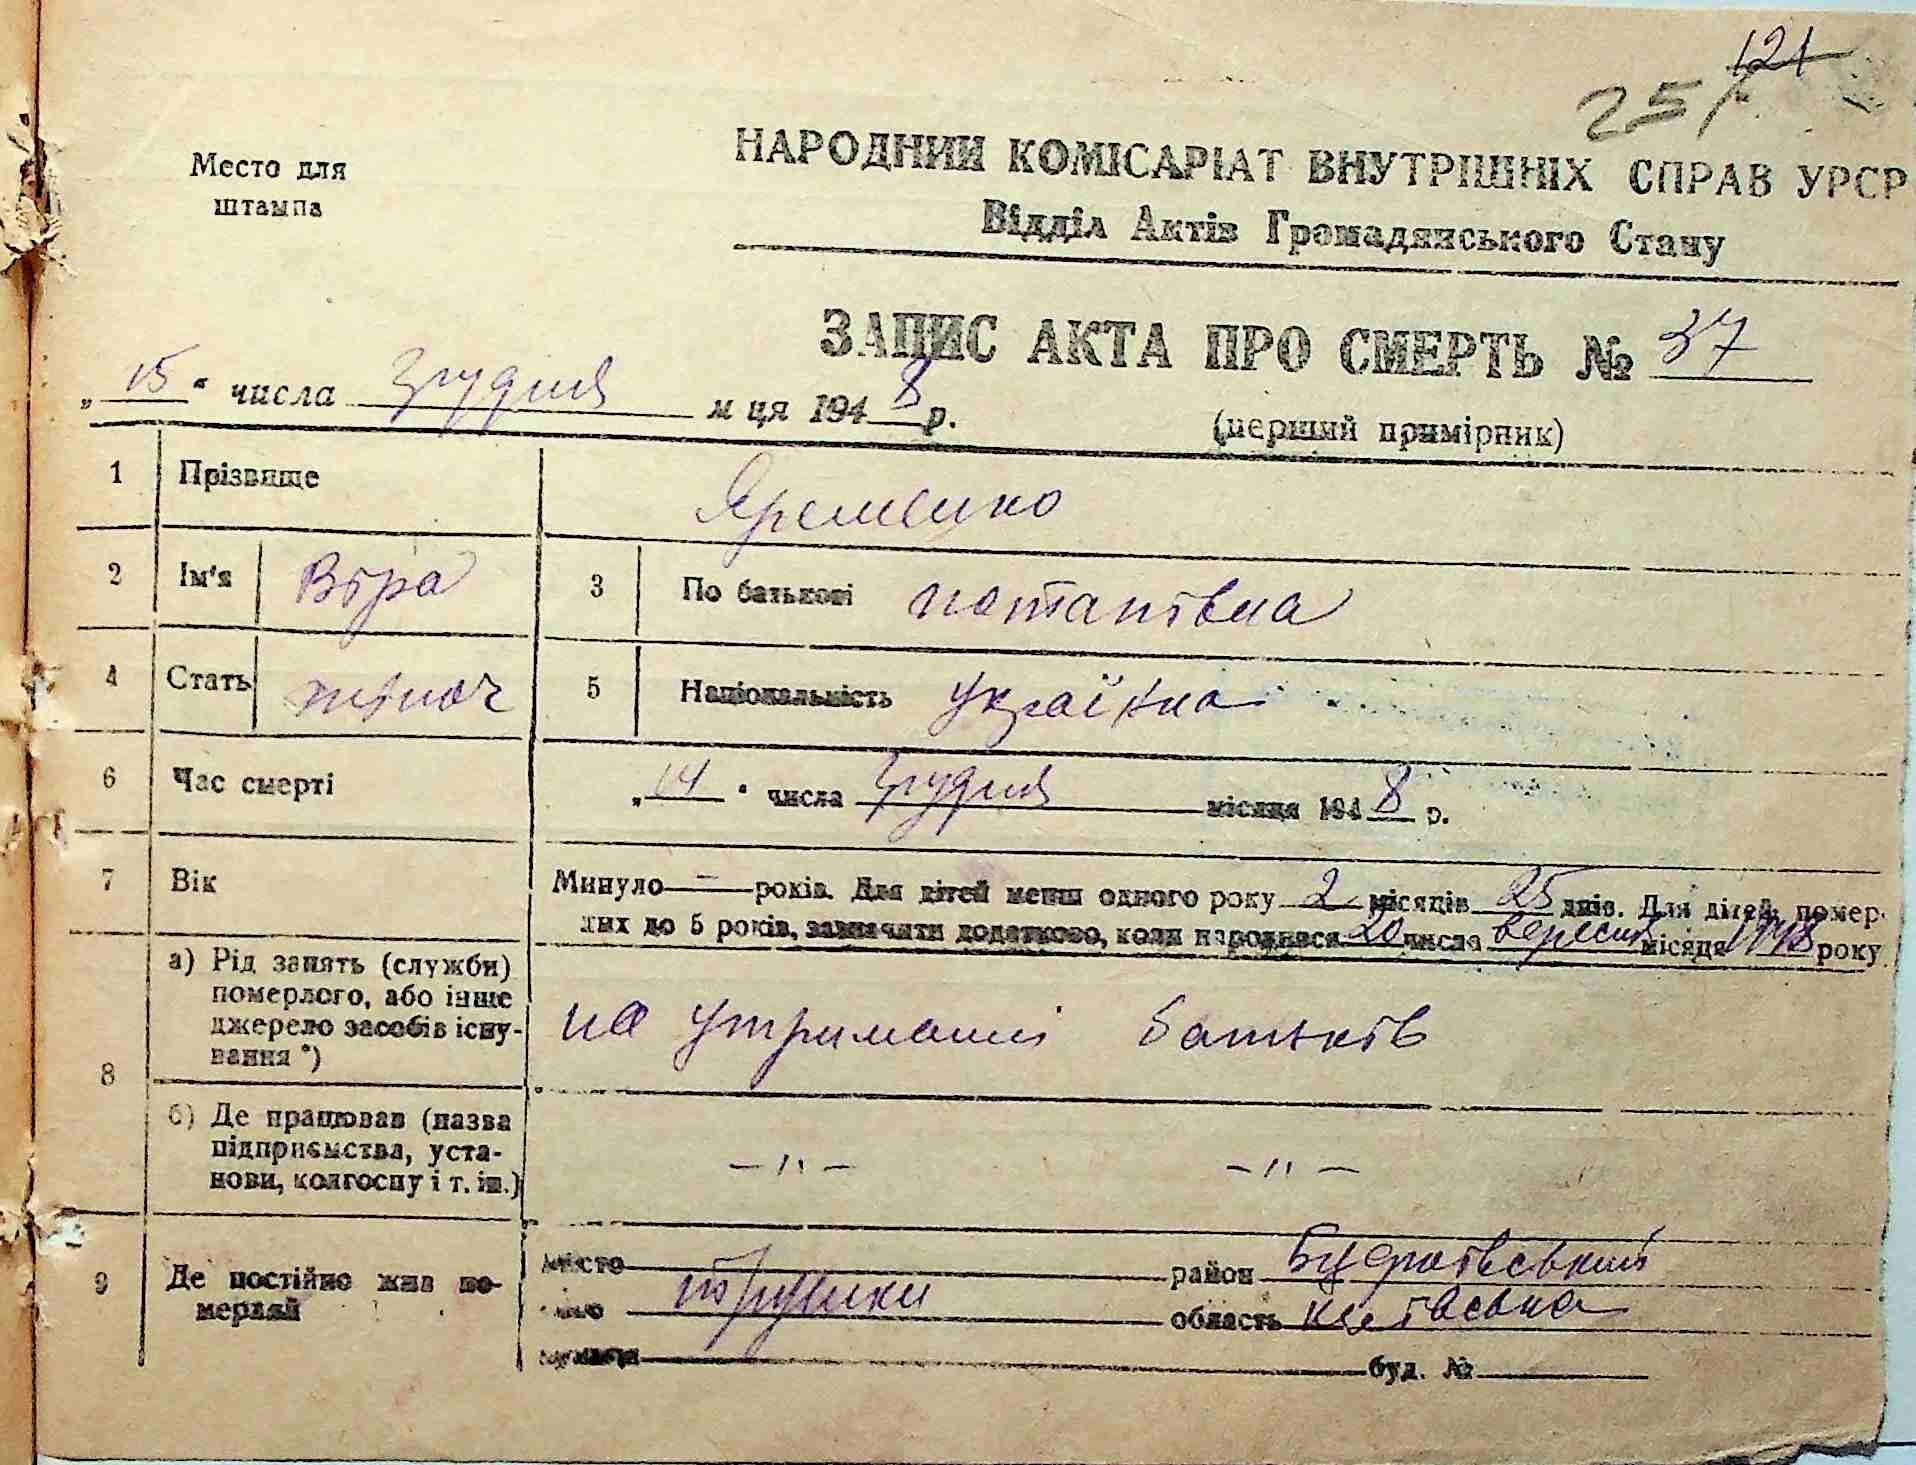 121
257
Место для
штампа
НАРОДНИЙ КОМІСАРІАТ ВНУТРІШНІХ СПРАВ УРСР
Відділ Актів Громадянського Стану
ЗАПИС АКТА ПРО СМЕРТЬ № 37
„15“ числа грудня м ця 1948 р.
(перший примірник)
1 Прізвище Яременко
2 Ім'я Віра 3 По батькові потапівна
4 Стать жіноч 5 Національність українка
6 Час смерті „14“ числа грудня місяця 1948 р.
7 Вік Минуло – років. Для дітей менш одного року 2 місяців 25 днів. Для дітей, помер-
лих до 5 років, зазначити додатково, коли народився 20 числа вересня місяця 1948 року
8 а) Рід занять (служби)
померлого, або інше
джерело засобів існу-
вання *)
на утриманні батьків
б) Де працював (назва
підприємства, уста-
нови, колгоспу і т. ін.)
–"– –"–
9 Де постійно жив по-
мерлий
місто район
село область київська
буд. №